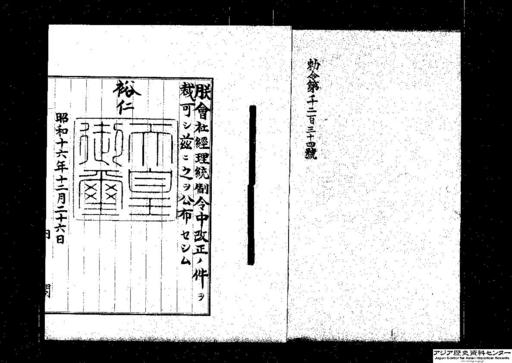 勅令第千二百三十四號
朕會社經理統制令中改正ノ件ヲ
裁可シ茲ニ之ヲ公布セシム
裕仁
天皇御璽
昭和十六年十二月二十六日
内閣
アジア歴史資料センター
Japan Center for Asian Historical Records